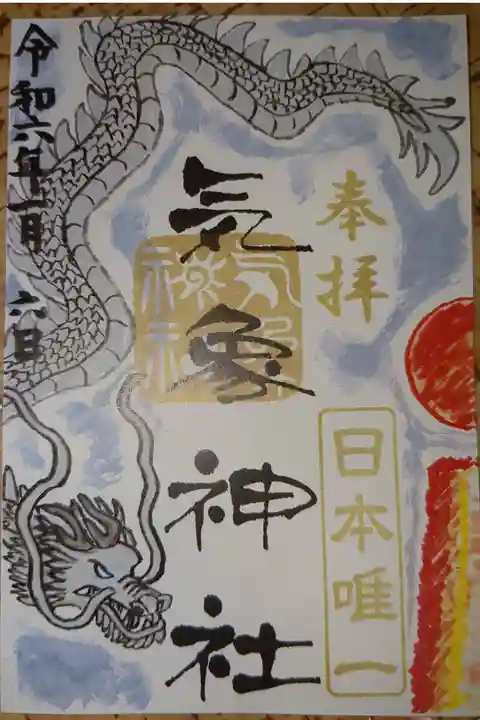 奉拝
日本唯一
気象神社
令和六年一月 六日